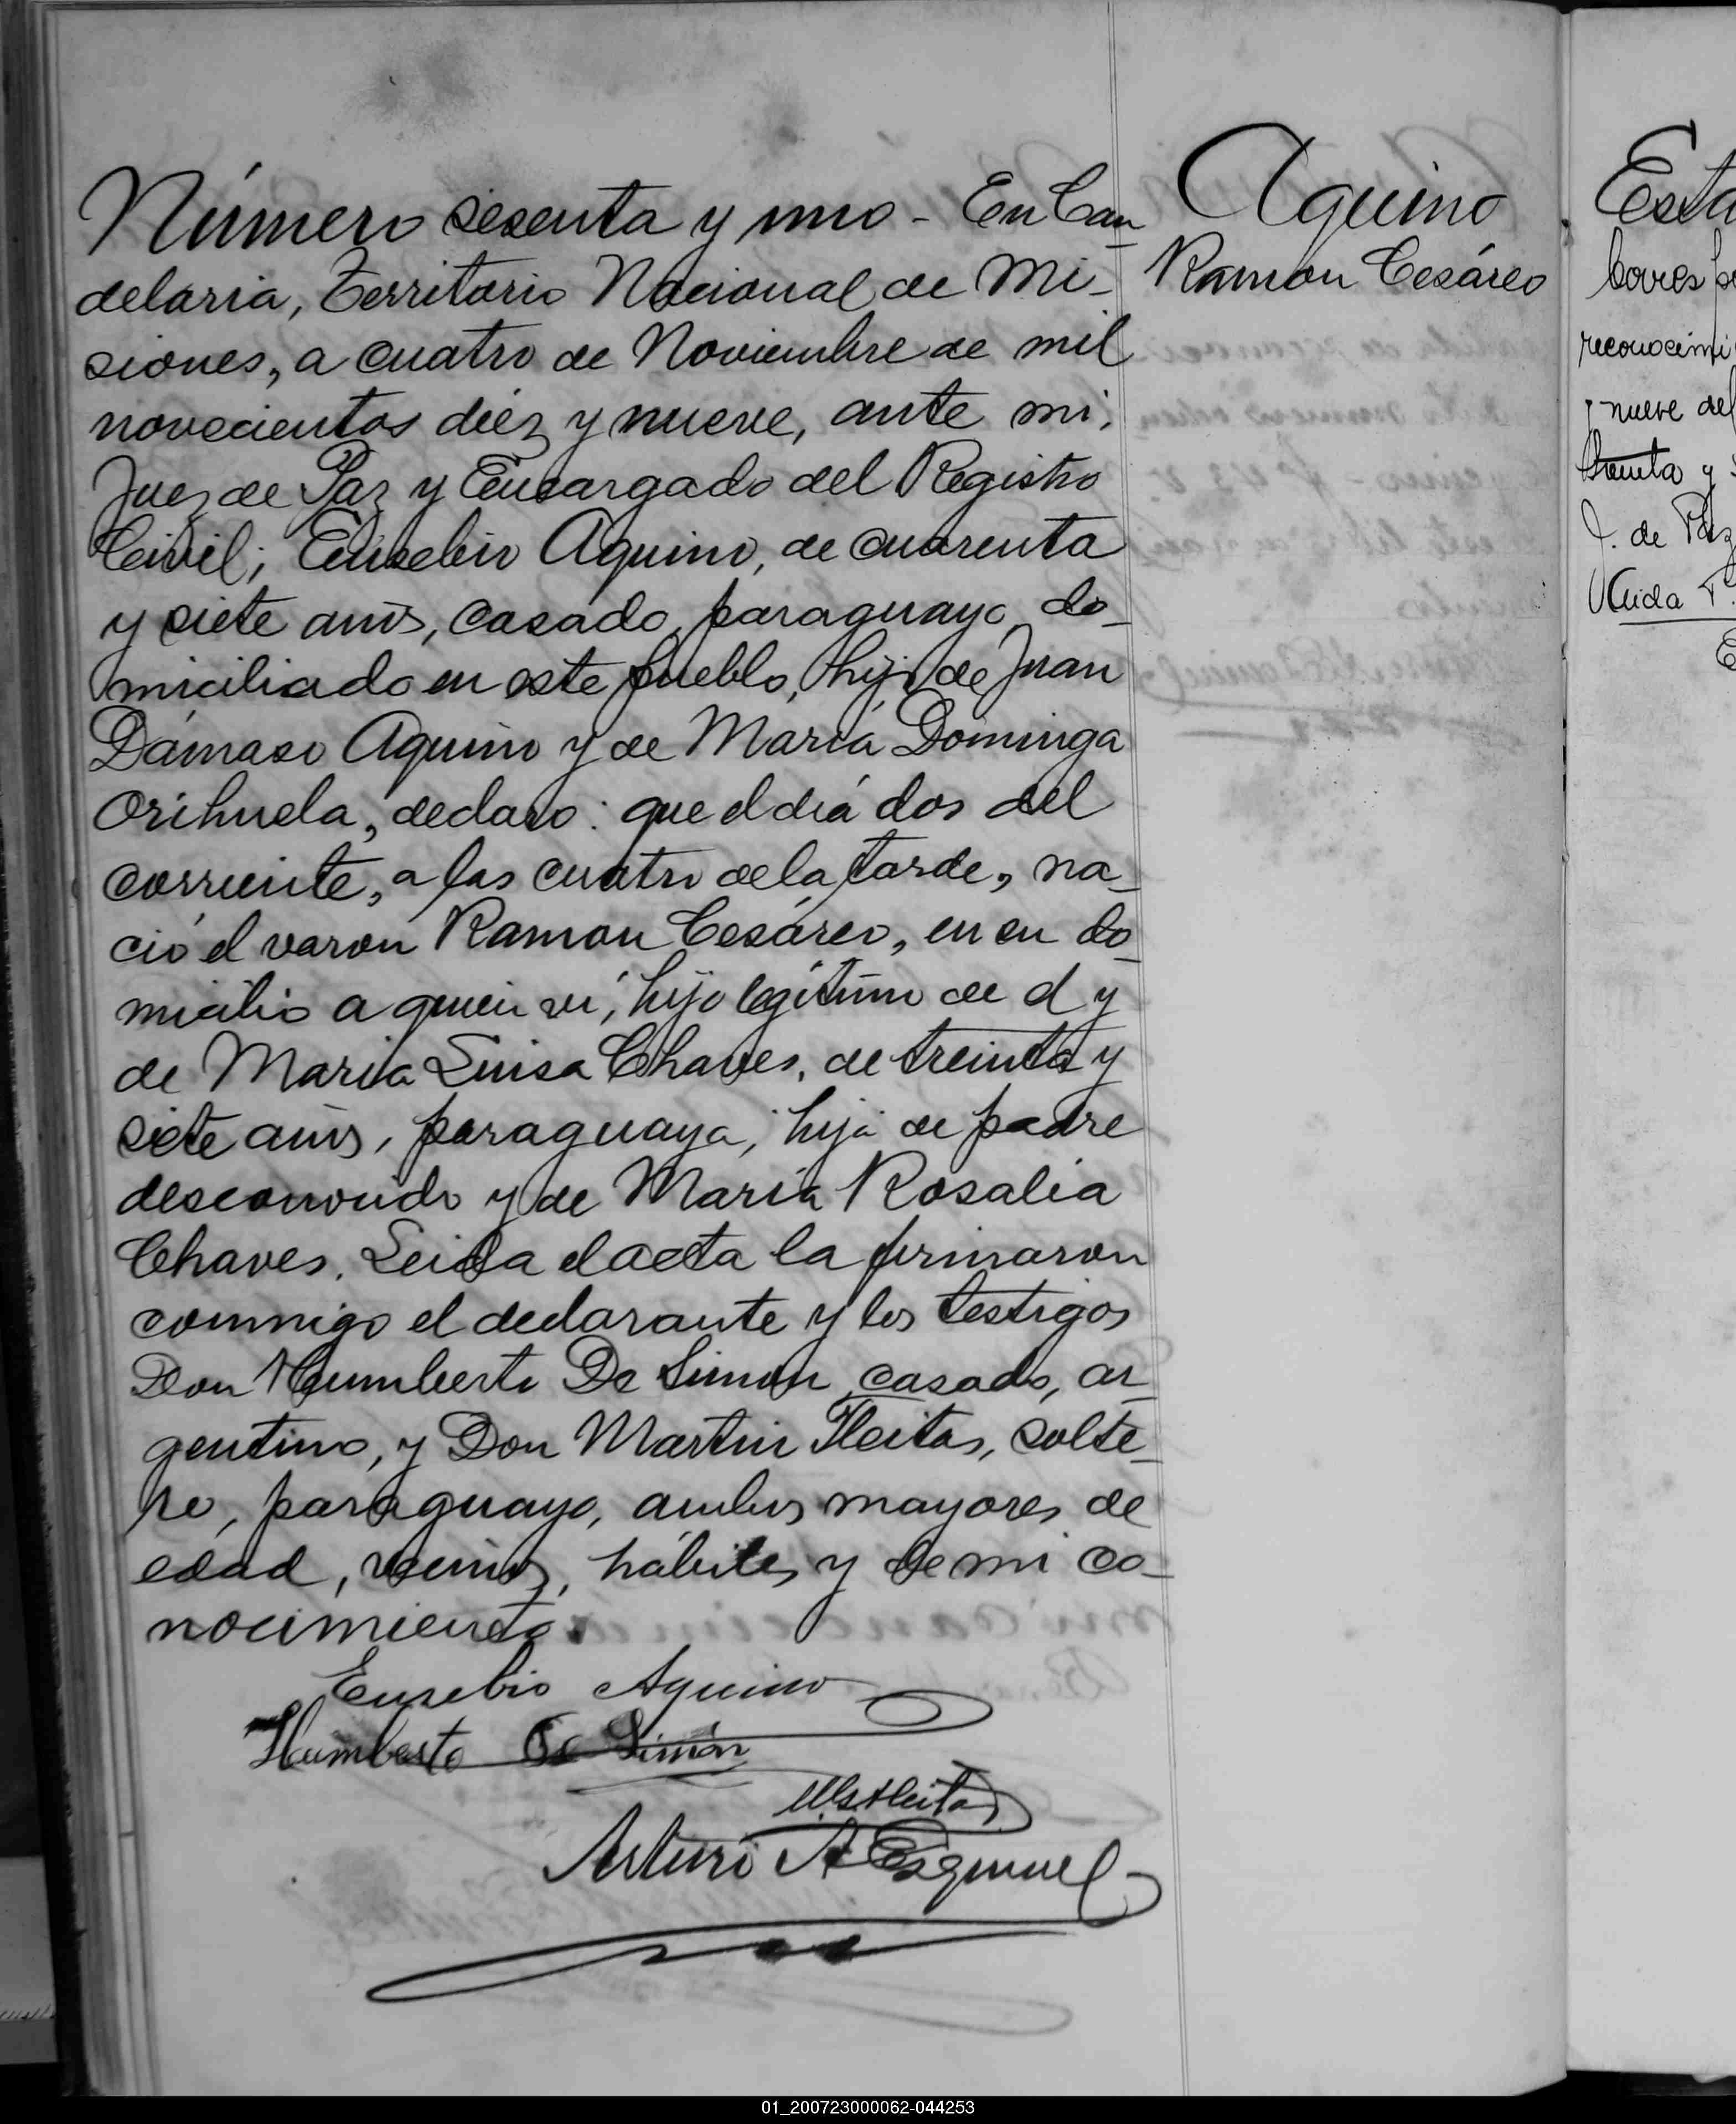 Número sesenta y uno - En Can-
delaria, Territorio Nacional de Mi-
siones, a cuatro de Noviembre de mil
novecientos diez y nueve, ante mi,
Juez de Paz y Encargado del Registro
Civil; Eusebio Aquino, de cuarenta
y siete años, casado, paraguayo, do-
miciliado en este pueblo, hijo de Juan
Dámaso Aquino y de María Dominga
Orihuela, declaro: que el día dos del
corriente, a las cuatro de la tarde, na-
ció el varon Ramon Cesáreo, en su do-
micilio a quien vi, hijo legítimo de él y
de Maria Luisa Chaves, de treinta y
siete años, paraguaya, hija de padre
desconocido y de María Rosalia
Chaves. Leida el acta la firmaron
conmigo el declarante y los testigos
Don Humberto De Simon, casado, ar-
gentino, y Don Martin Fleitas, solte-
ro, paraguayo, ambos mayores de
edad, vecinos, hábiles y de mi co-
nocimiento.
Eusebio Aquino
Humberto De Simón
M Fleitas
Arturo A Esquivel
Aquino
Ramon Cesáreo
reconocimi
y nueve del
J. de Paz
01_200723000062-044253